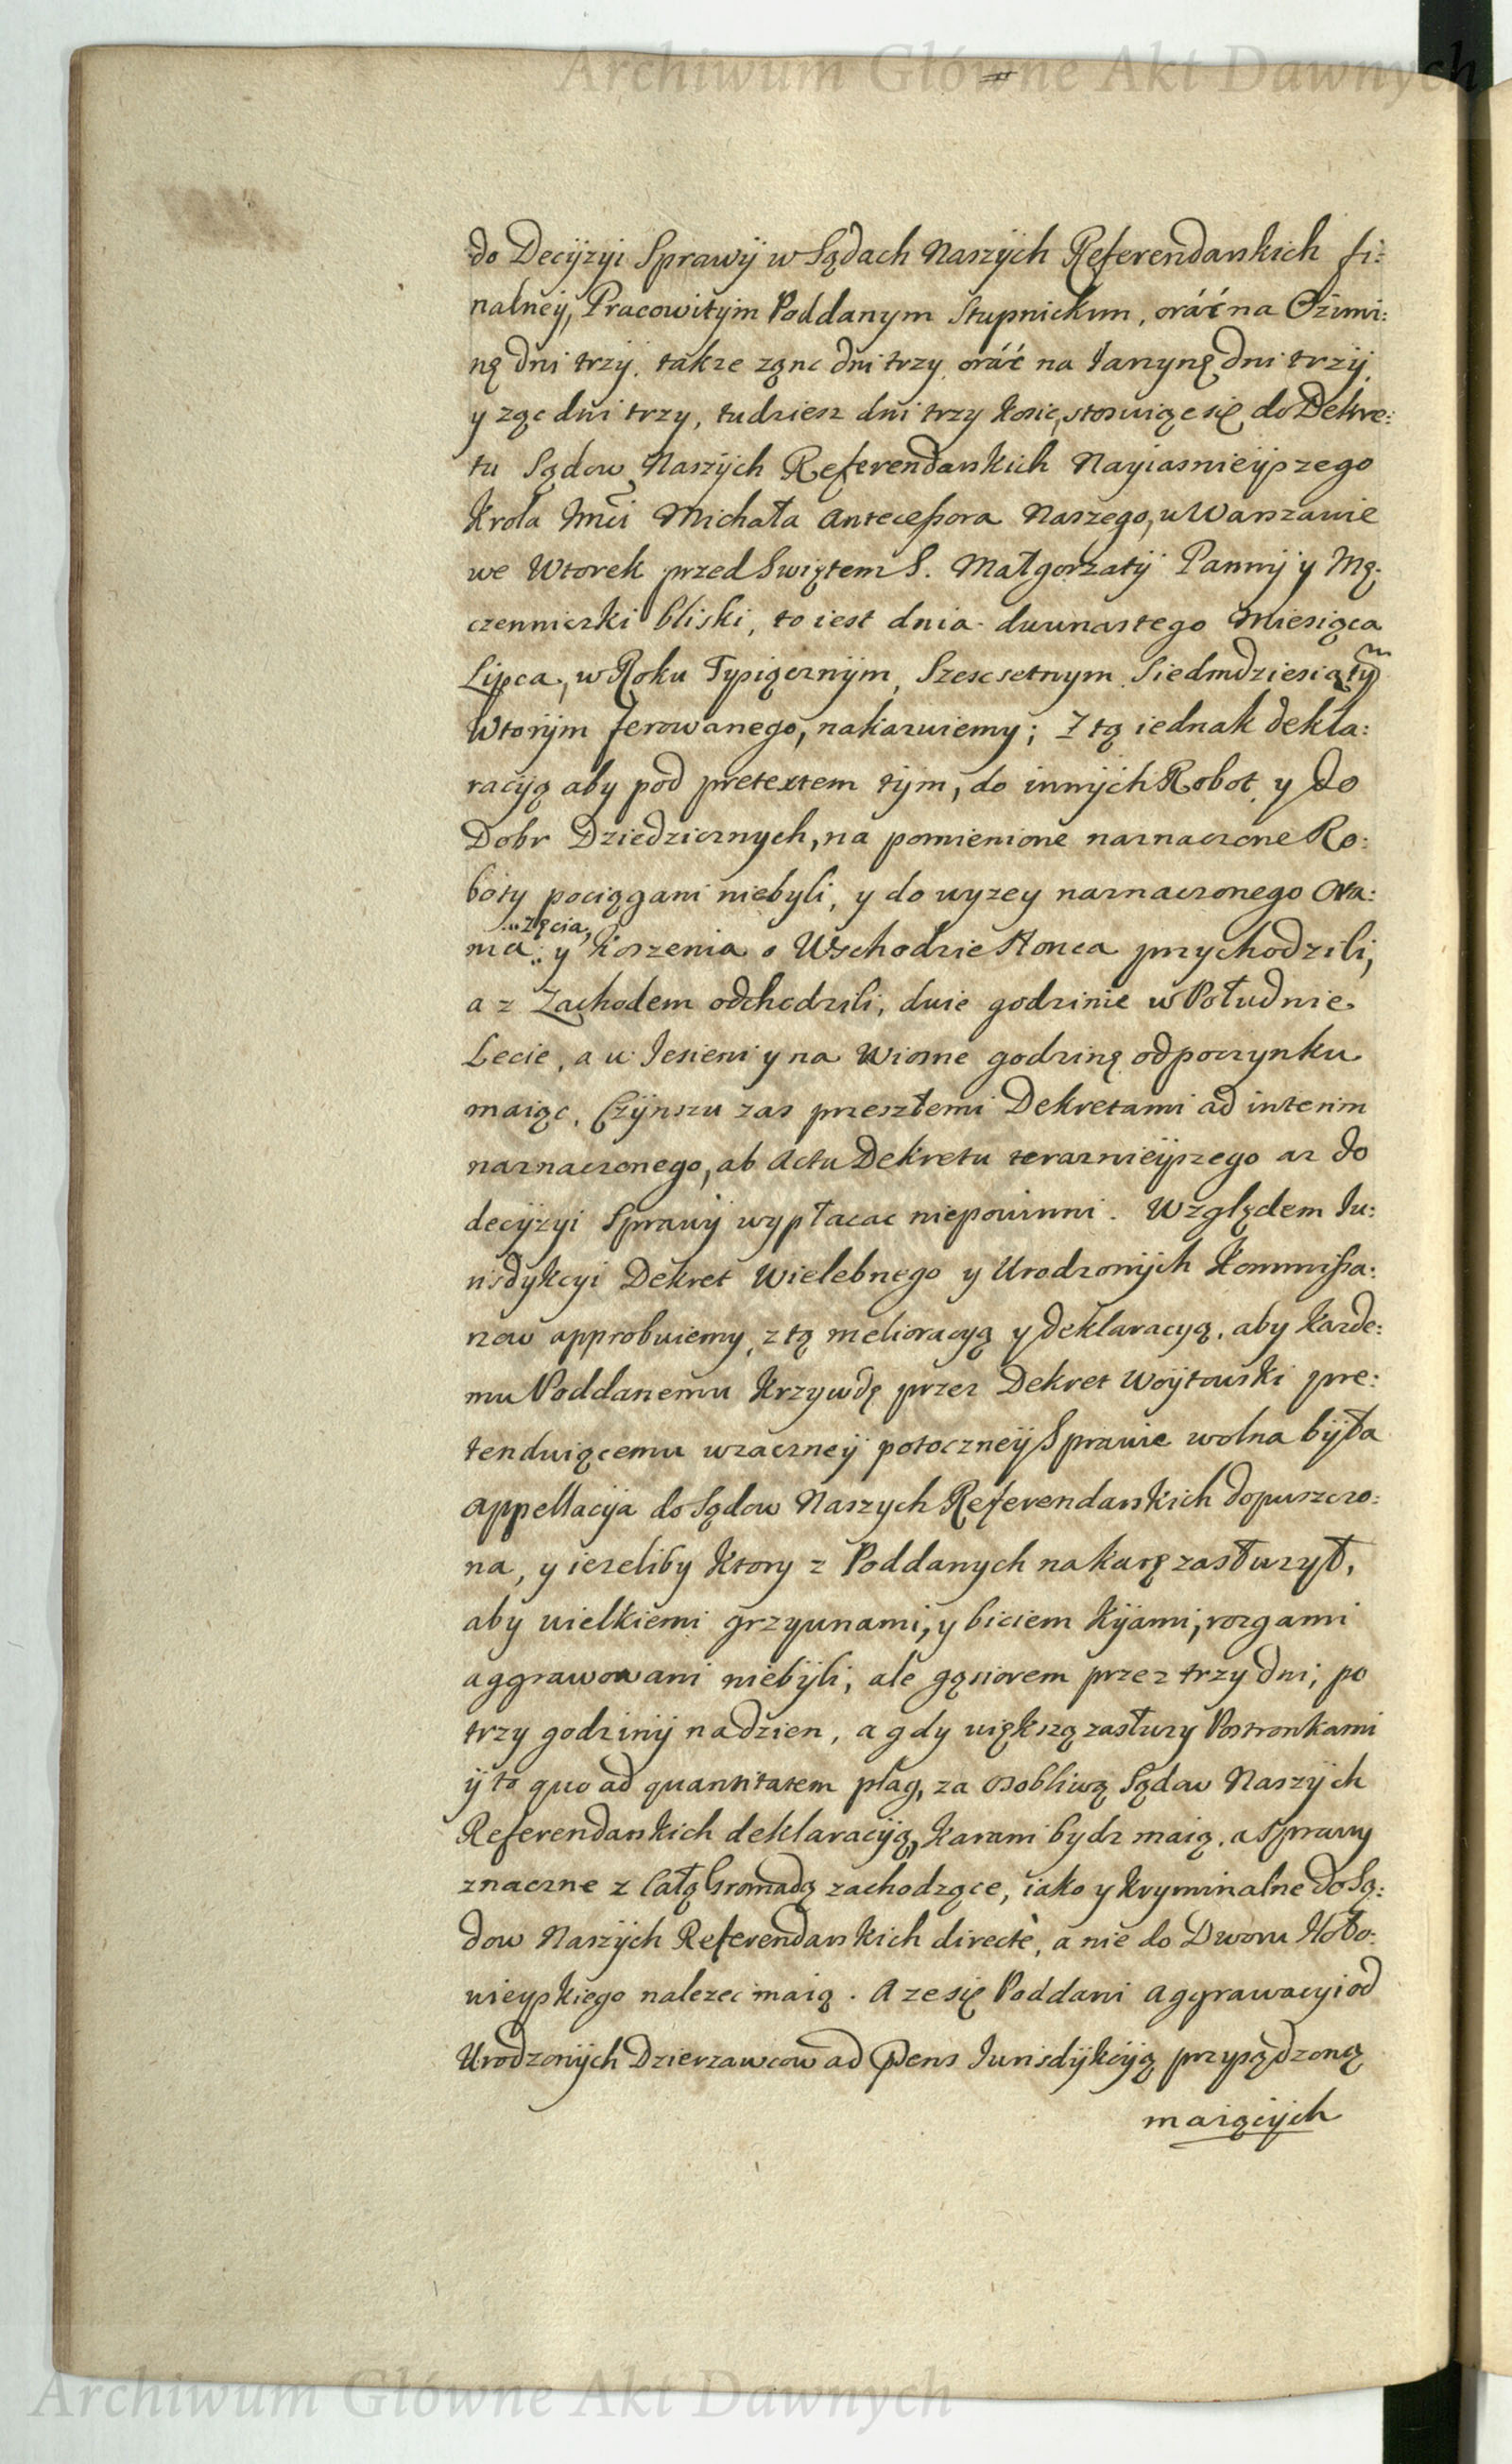 Archiwum Główne Akt Dawnych
do Decÿzyi Sprawÿ w Sądach Naszÿch Referendarskich fi:
nalneÿ, Pracowitÿm Poddanym Stupnickim, oráć na Ozimi:
nę dni trzÿ, takze ząnc dni trzy, oráć na Jarzynę dni trzÿ,
y ząc dni trzy, tudziesz dni trzy kosic, stosuiąc się do Dekre:
tu Sądow Naszÿch Referendarskich Nayiasnieÿszego
Krola Jmći Michała Antecessora Naszego, w Warszawie
we Wtorek przed Swiętem S. Małgorzatÿ Pannÿ y Mę:
czenniczki bliski, to iest dnia dwunastego Miesiąca
Lipca, w Roku Tysiącznÿm, Szescsetnym Siedmdziesiątÿm
Wtorÿm ferowanego, nakazuiemy; Z tą iednak dekla:
racÿą aby pod pretextem tÿm, do innÿch Robot y do
Dobr Dziedzicznych, na pomienione naznaczone Ro:
boty pociągani niebyli, y do wyzey naznaczonego Ora:
..zęcia,
nia .. y koszenia o Wschodzie słonca przychodzili,
a z Zachodem odchodzili, dwie godzinie w Południe
Lecie, a w Jesieni y na Wiosne godzinę odpoczynku
maiąc. Czÿnszu zas przeszłemi Dekretami ad interim
naznaczonego, ab Actu Dekretu teraznieÿszego az do
decÿzyi Sprawÿ wypłacac niepowinni. Względem Iu:
risdÿkcyi Dekret Wielebnego y Urodzonÿch Kommissa:
rzow approbuiemy, z tą melioracÿą y deklaracyą, aby kazde:
mu Poddanemu Krzywdę przez Dekret Woÿtowski pre:
tenduiącemu wzaczneÿ potoczneÿ Sprawie wolna bÿła
Appellacÿa do Sądow Naszych Referendarskich dopuszczo:
na, y iezeliby ktory z Poddanych na karę zasłuzył,
aby wielkiemi grzywnami, y biciem kÿami, rozgami
aggrawowani niebÿli, ale gąsiorem przez trzy dni, po
trzy godzinÿ na dzien, a gdy większą zasłuzy Postronkami
ÿ to quo ad quantitatem plag, za osobliwą Sądow Naszÿch
Referendarskich deklaracÿą, karani bydz maią, a Sprawy
znaczne z całą Gromadą zachodzące, iako y kryminalne do Są:
dow Naszÿch Referendarskich directè, a nie do Dworu Hoło:
wieyskiego nalezec maią. A ze się Poddani Aggrawacyi od
Urodzonÿch Dzierzawcow ad Jurisdÿkcÿą przysądzoną
maiącÿch
Archiwum Główne Akt Dawnych